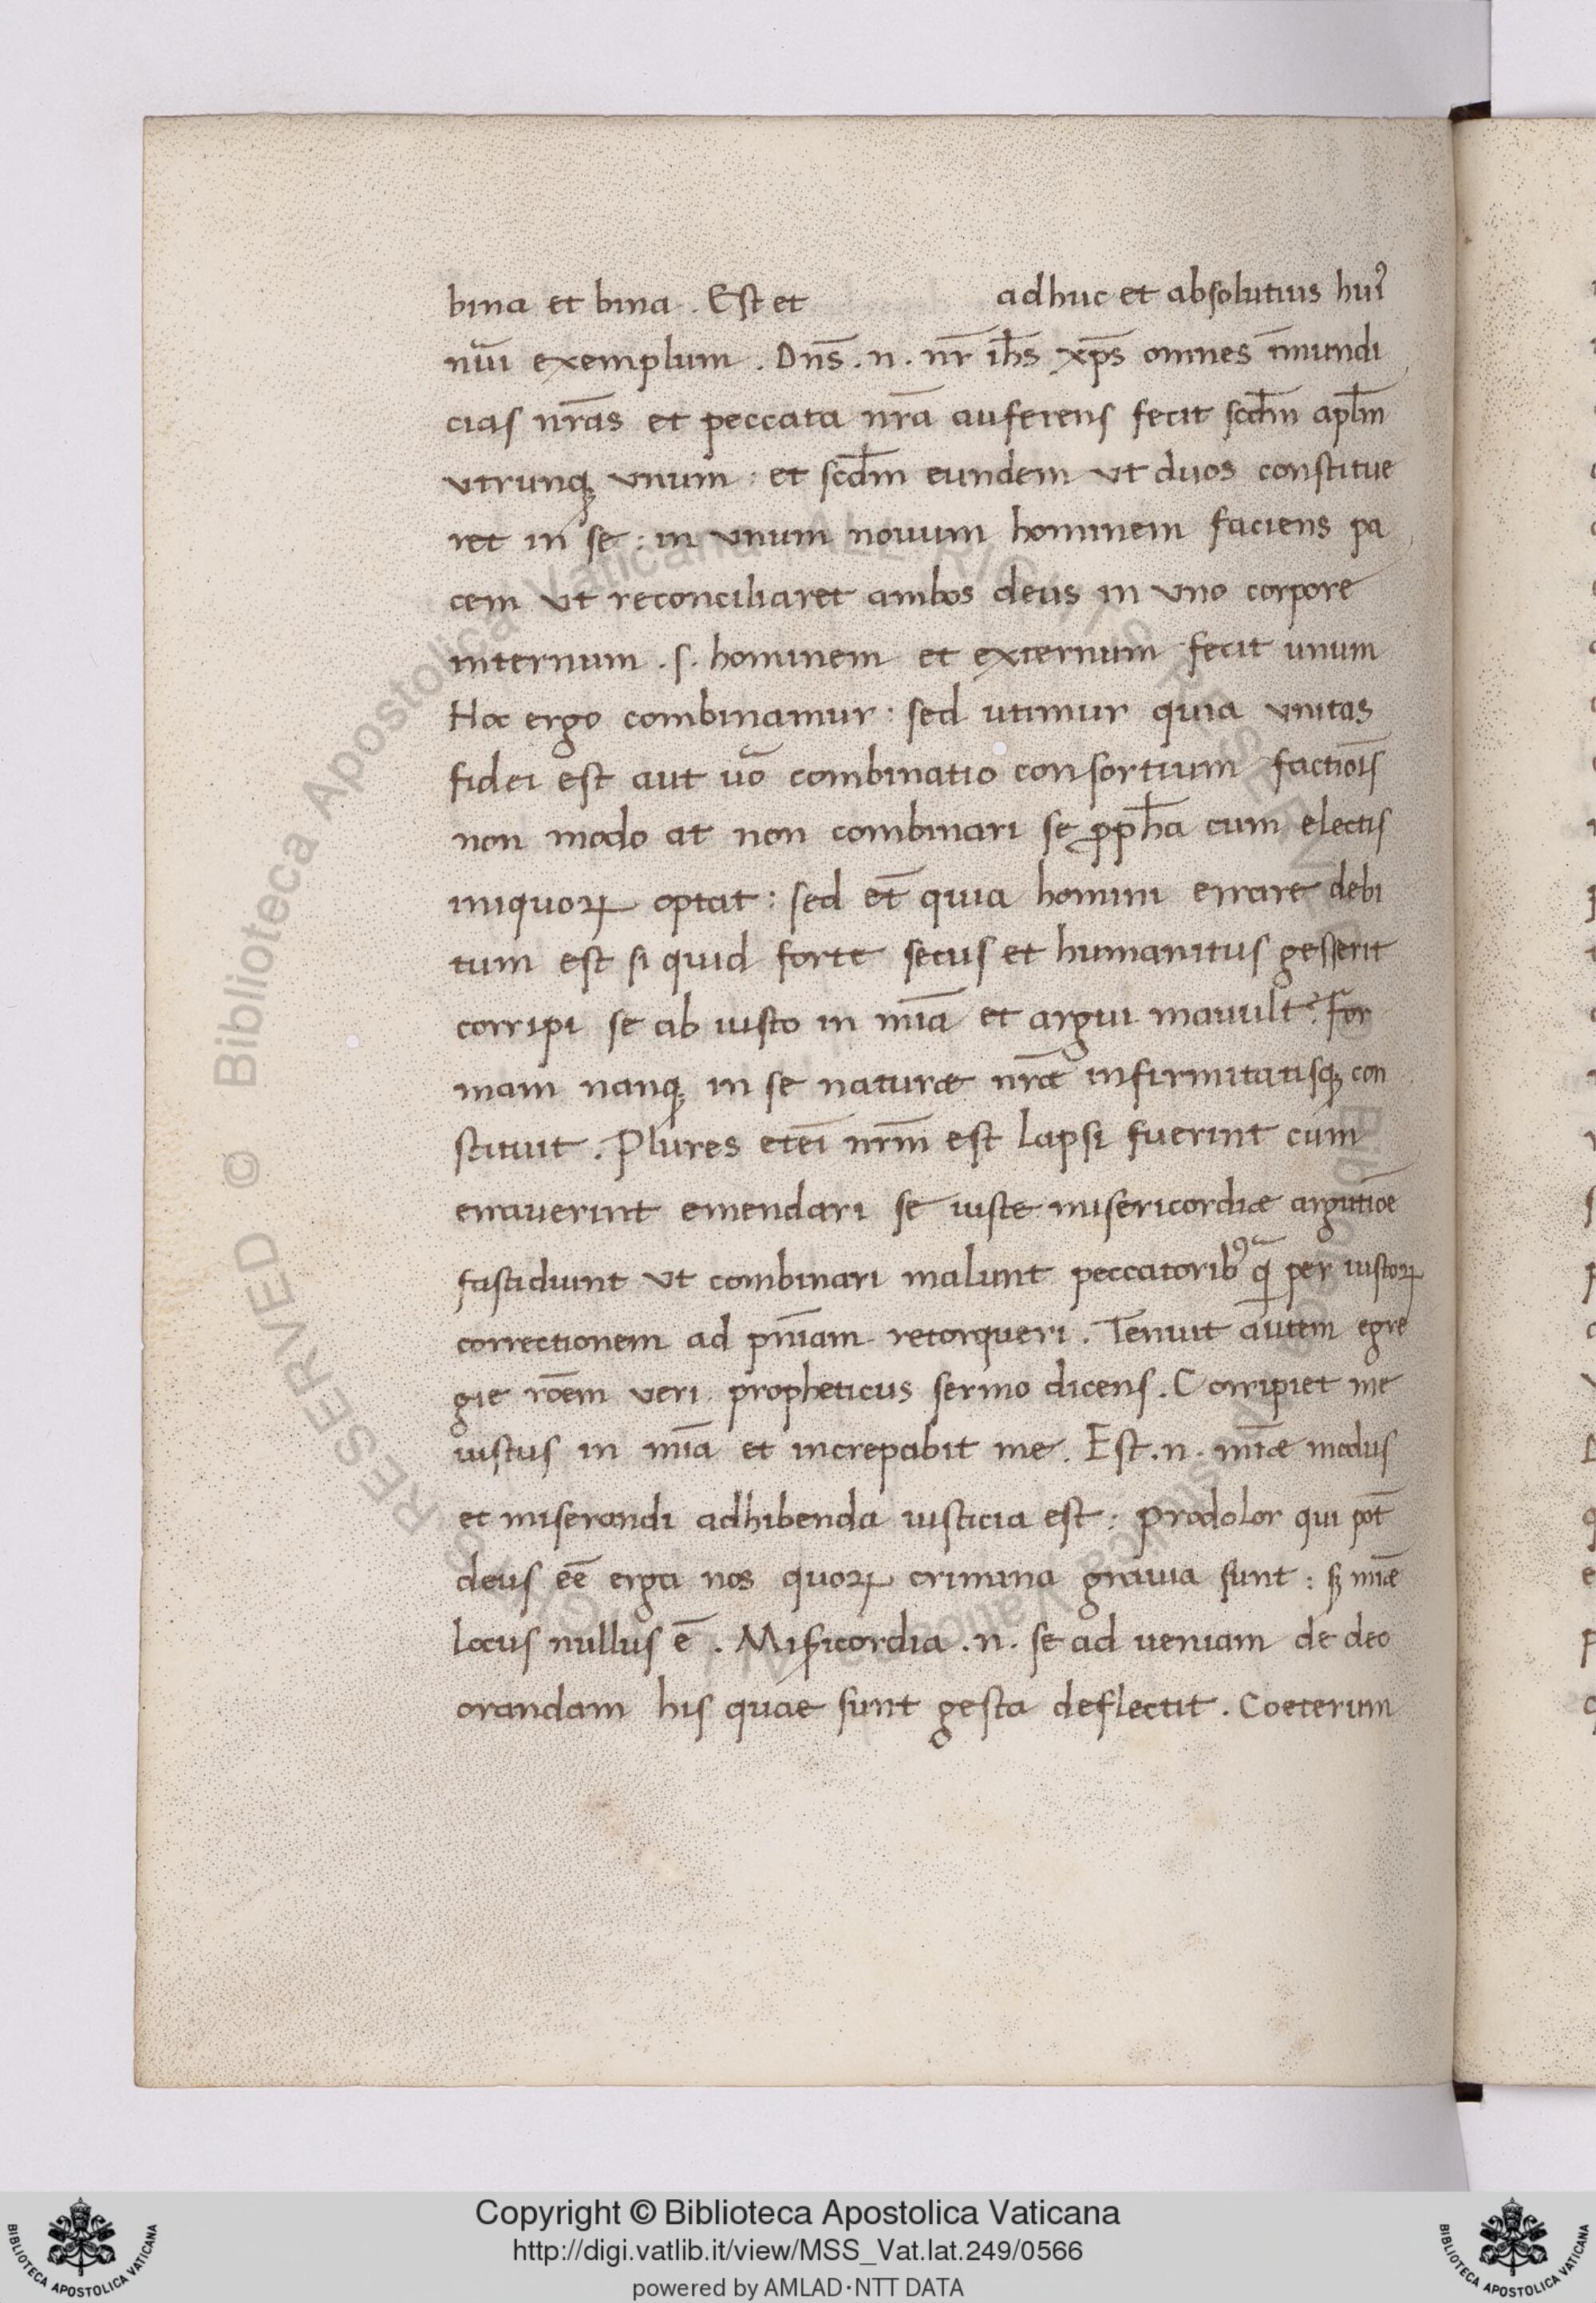 bina et bina . Est et adhuc et absolutius huiꝰ
nūi exemplum . Dn̄s .n. nr̄ ih̄s xp̄s omnes īmundi
cias nr̄as et peccata nr̄a auferens fecit scd̄m apl̄m
vtrunqꝫ vnum : et scd̄m eundem vt duos constitue
ret in se : in vnum nouum hominem faciens pa
cem vt reconciliaret ambos deus in vno corpore
internum . s. hominem et externum fecit unum
Hoc ergo combinamur : sed utimur quia vnitas
fidei est aut uō combinatio consortium factiōis
non modo at non combinari se ꝓph̄a cum electis
iniquoꝝ optat : sed et̄ quia homini errare debi
tum est si quid forte secus et humanitus gesserit
corripi se ab iusto in mīa et argui mauult . For
mam nanqꝫ in se naturæ nr̄æ infirmitatisqꝫ con
stituit . Plures eteī nr̄m est lapsi fuerint cum
errauerint emendari se iuste misericordiæ argutiōe
fastidiunt vt combinari malunt peccatoribꝰ q̄ per iustoꝝ
correctionem ad pn̄iam retorqueri . Tenuit autem egre
gie rōem veri propheticus sermo dicens . Corripiet me
iustus in mīa et increpabit me . Est .n. mīæ modus
et miserandi adhibenda iusticia est : prodolor qui pōt
deus eē erga nos quoꝝ crimina grauia sunt : sꝫ mīæ
locus nullus ē . Misicordia .n. se ad ueniam de deo
orandam his quae sunt gesta deflectit . Coeterum
Copyright © Biblioteca Apostolica Vaticana
http://digi.vatlib.it/view/MSS_Vat.lat.249/0566
powered by AMLAD·NTT DATA